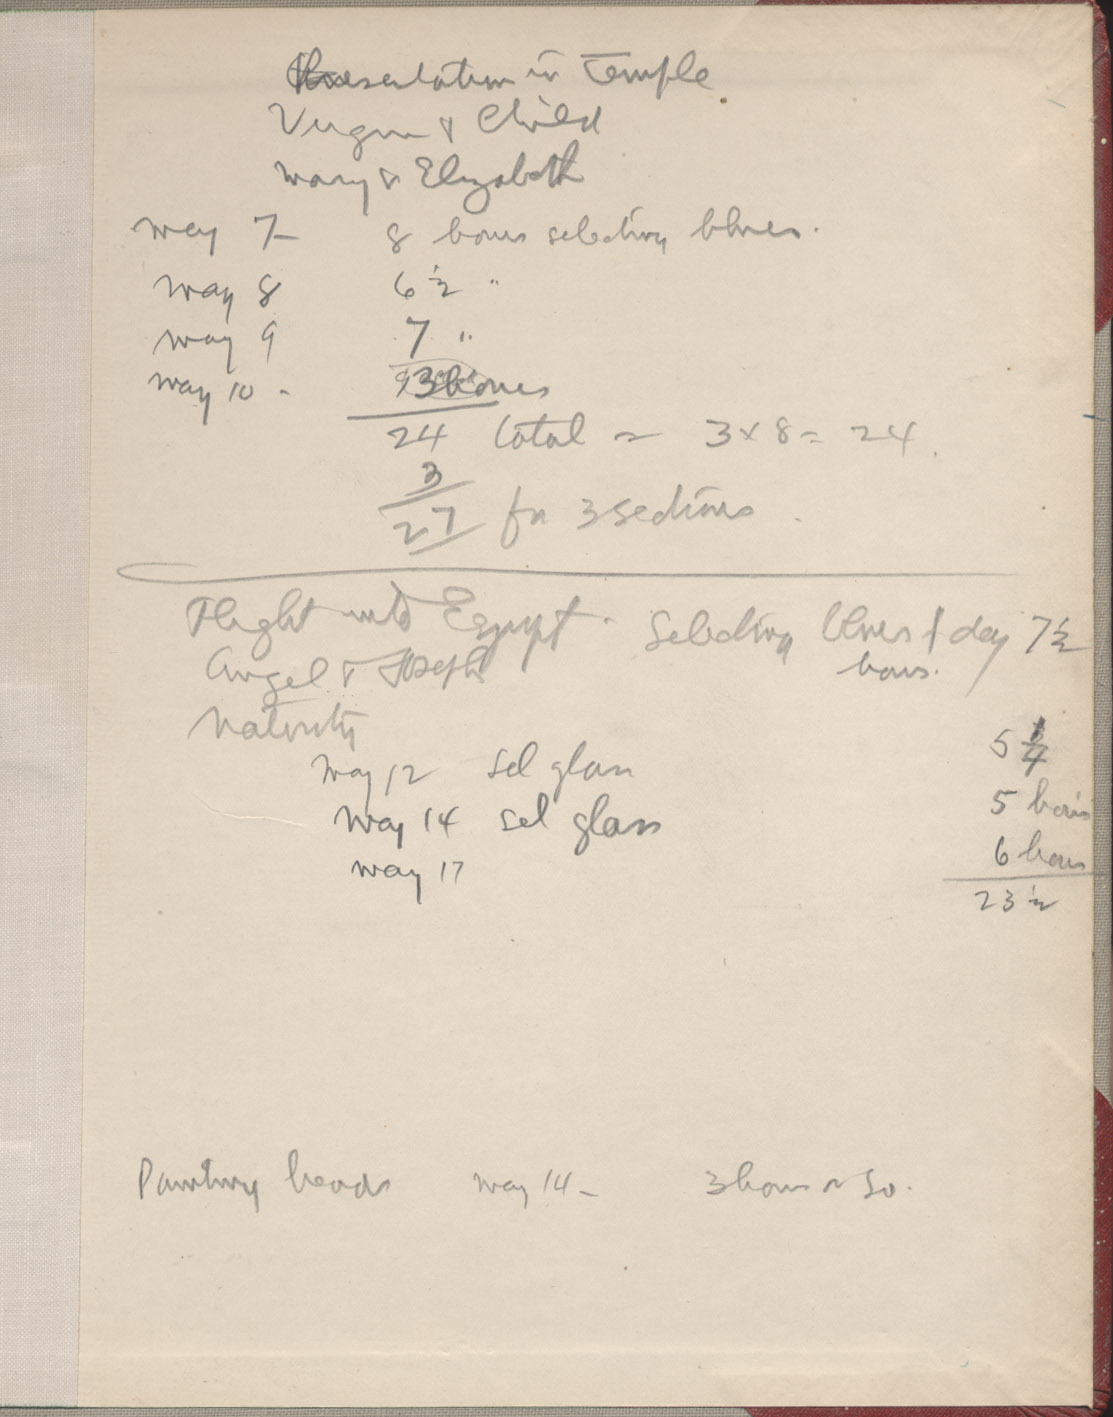 Presentation in Temple
Virgin & Child
Mary & Elizabeth
May 7 - 8 hours selecting blues.
May 8 6 1/2 "
May 9 7 "
May 10 - 3 hours
24 total = 3 x 8 = 24.
3
27 for 3 sections.
Flight into Egypt. Selecting blues 1 day 7 1/2
hours.
Angel & Joseph
Nativity
5 1/4
May 12 sel glass
5 hours
May 14 sel glass
6 hours
May 17
23 1/2
Painting heads May 14 - 3 hours or so.